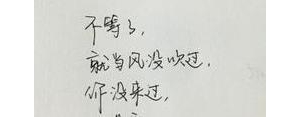 不等了,
就当风没吹过,
你没来过,